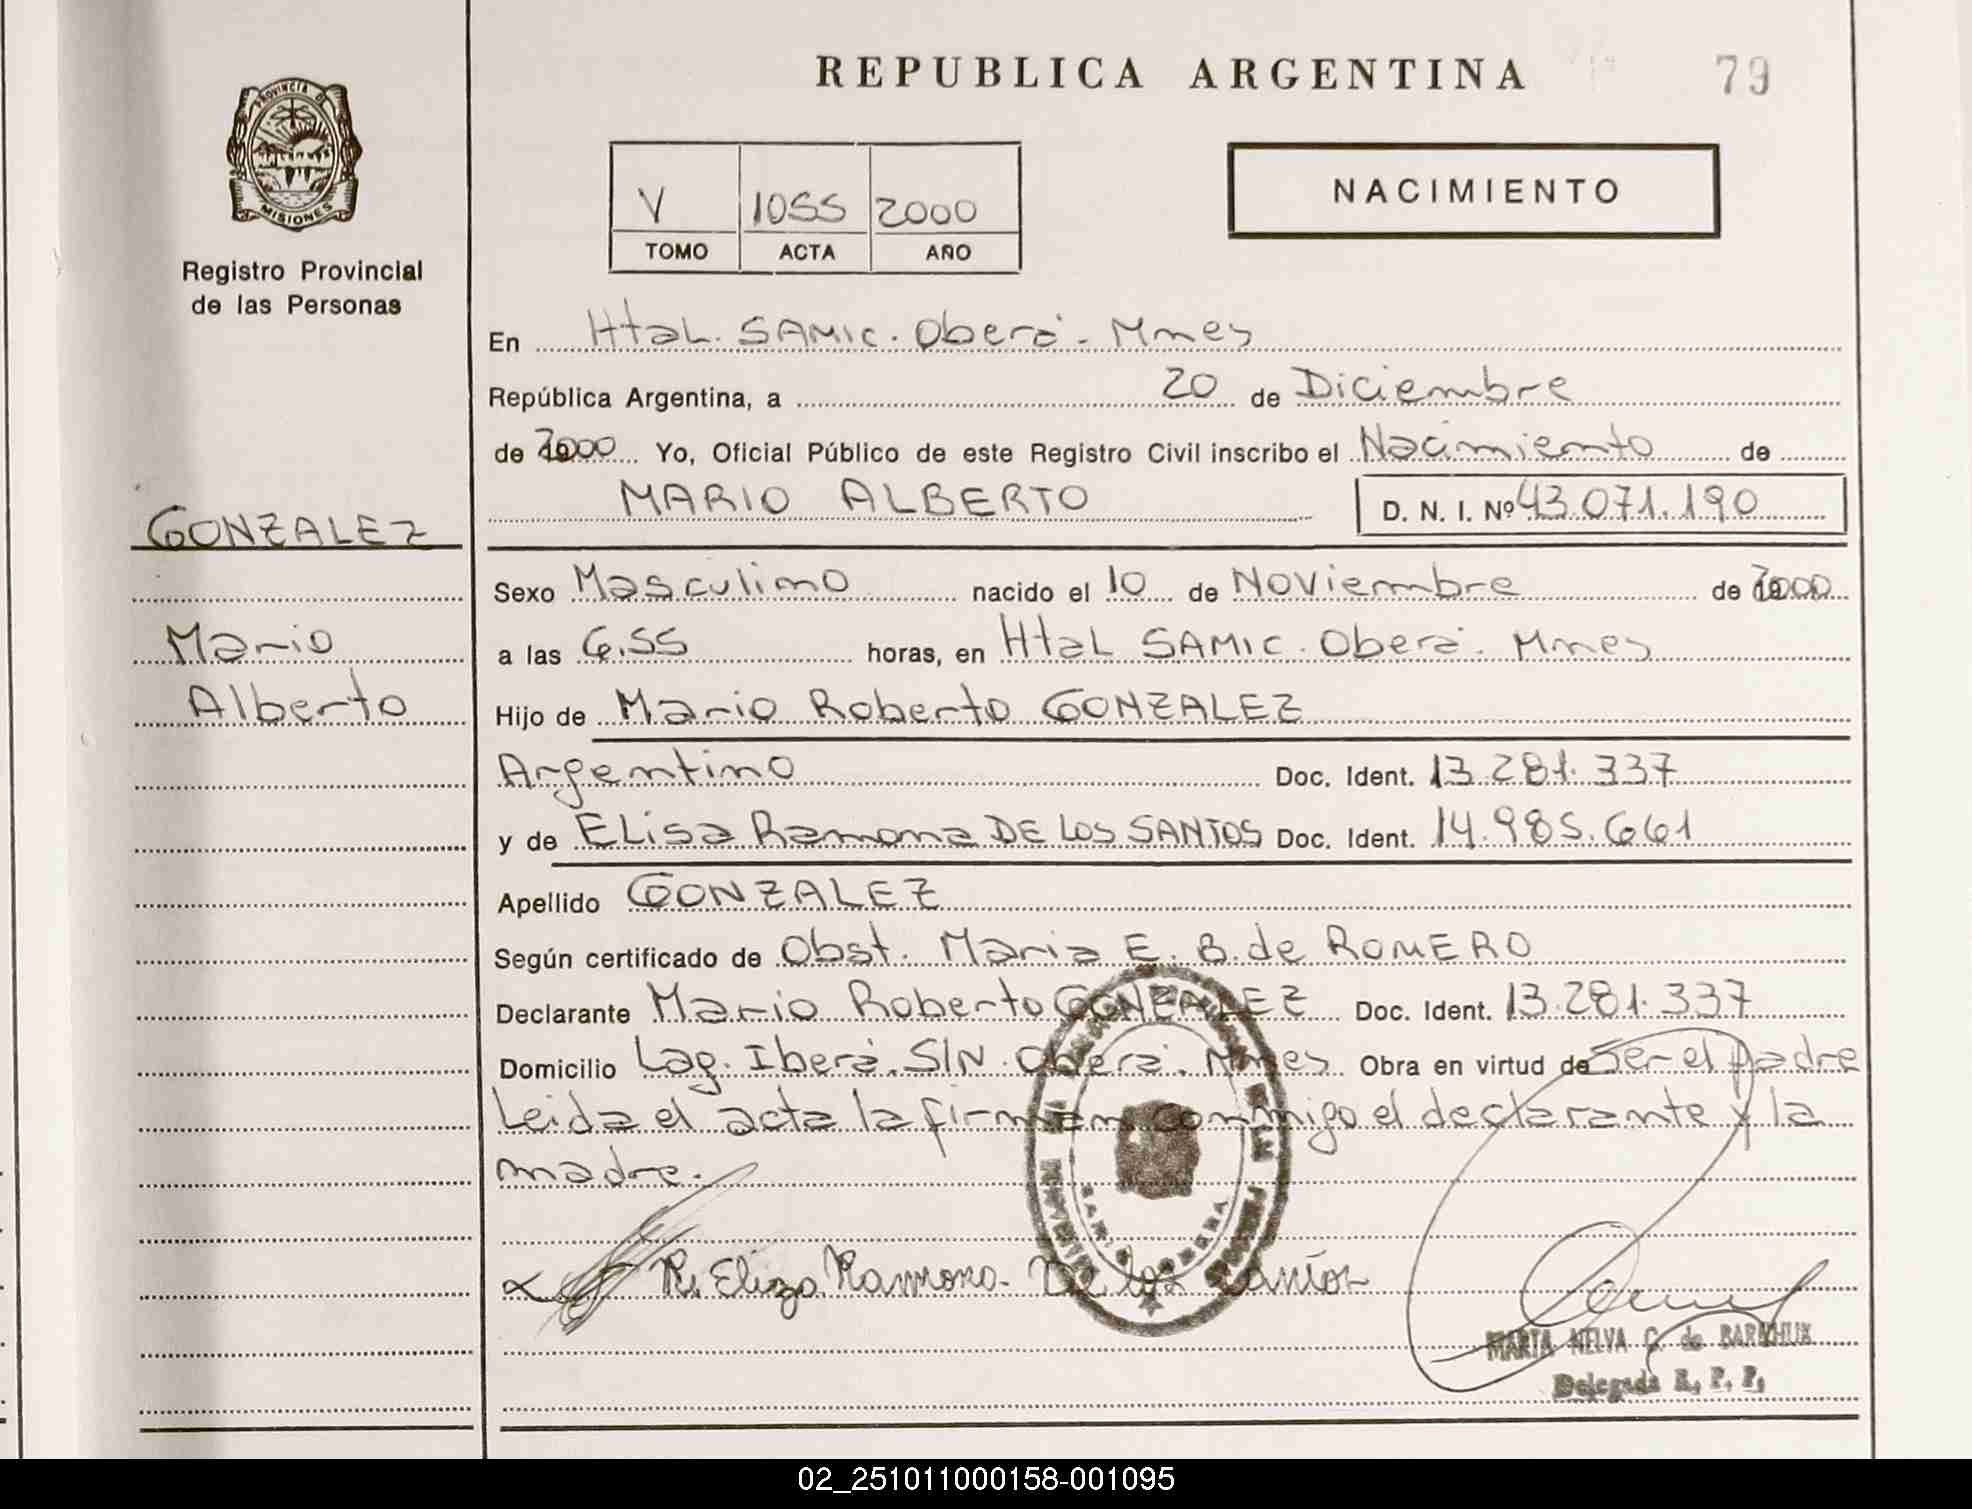 REPUBLICA ARGENTINA
79
PROVINCIA DE
MISIONES
Registro Provincial
de las Personas
V 1055 2000
TOMO ACTA AÑO
NACIMIENTO
En Htal. SAMIC. Oberá. Mnes
República Argentina, a 20 de Diciembre
de 2000 Yo, Oficial Público de este Registro Civil inscribo el Nacimiento de
MARIO ALBERTO D. N. I. Nº 43.071.190
GONZALEZ
Mario
Alberto
Sexo Masculino nacido el 10 de Noviembre de 2000
a las 6.55 horas, en Htal SAMIC. Oberá. Mnes
Hijo de Mario Roberto GONZALEZ
Argentino Doc. Ident. 13.281.337
y de ELisa Ramona DE LOS SANTOS Doc. Ident. 14.985.661
Apellido GONZALEZ
Según certificado de Obst. Maria E. B. de ROMERO
Declarante Mario Roberto GONZALEZ Doc. Ident. 13.281.337
Domicilio Lag. Iberá. S/N. Oberá. Mnes Obra en virtud de Ser el padre
Leida el acta la firman conmigo el declarante y la
madre.
R. Eliza Ramona De los Santos
MARTA NELVA C. de
Delegada R. P. P.
02_251011000158-001095